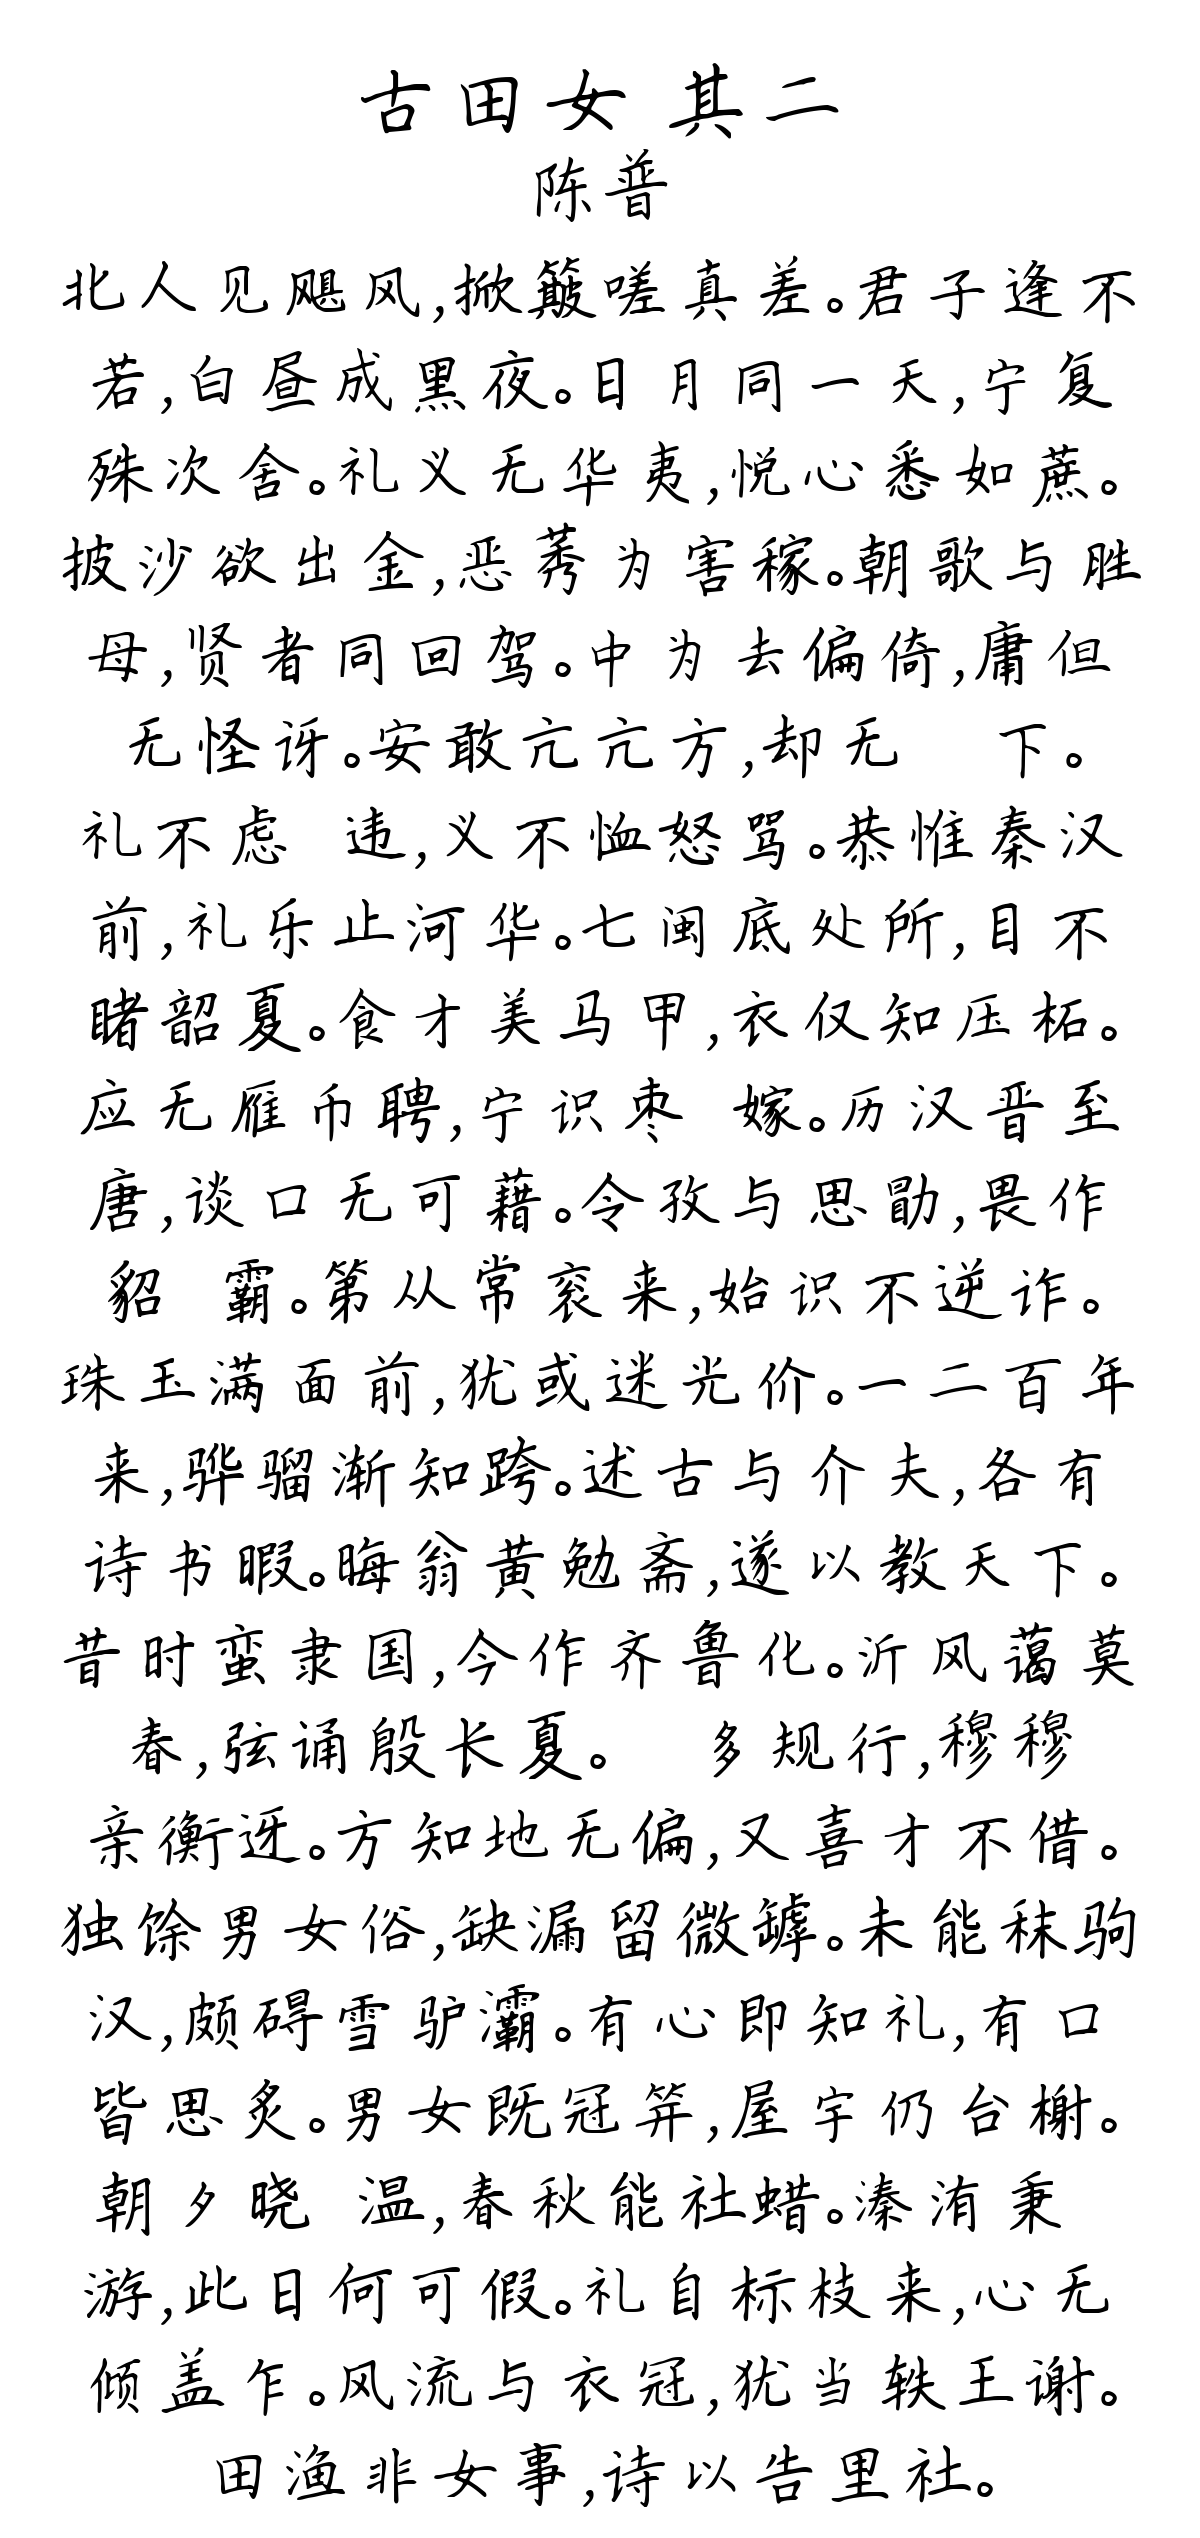 古田女 其二
陈普
北人见飓风,掀簸嗟真差。君子逢不
若,白昼成黑夜。日月同一天,宁复
殊次舍。礼义无华夷,悦心悉如蔗。
披沙欲出金,恶莠为害稼。朝歌与胜
母,贤者同回驾。中为去偏倚,庸但
无怪讶。安敢亢亢方,却无 下。
礼不虑 违,义不恤怒骂。恭惟秦汉
前,礼乐止河华。七闽底处所,目不
睹韶夏。食才美马甲,衣仅知压柘。
应无雁币聘,宁识枣 嫁。历汉晋至
唐,谈口无可藉。令孜与思勖,畏作
貂 霸。第从常衮来,始识不逆诈。
珠玉满面前,犹或迷光价。一二百年
来,骅骝渐知跨。述古与介夫,各有
诗书暇。晦翁黄勉斋,遂以教天下。
昔时蛮隶国,今作齐鲁化。沂风蔼莫
春,弦诵殷长夏。 多规行,穆穆
亲衡迓。方知地无偏,又喜才不借。
独馀男女俗,缺漏留微罅。未能秣驹
汉,颇碍雪驴灞。有心即知礼,有口
皆思炙。男女既冠笄,屋宇仍台榭。
朝夕晓 温,春秋能社蜡。溱洧秉
游,此日何可假。礼自标枝来,心无
倾盖乍。风流与衣冠,犹当轶王谢。
田渔非女事,诗以告里社。